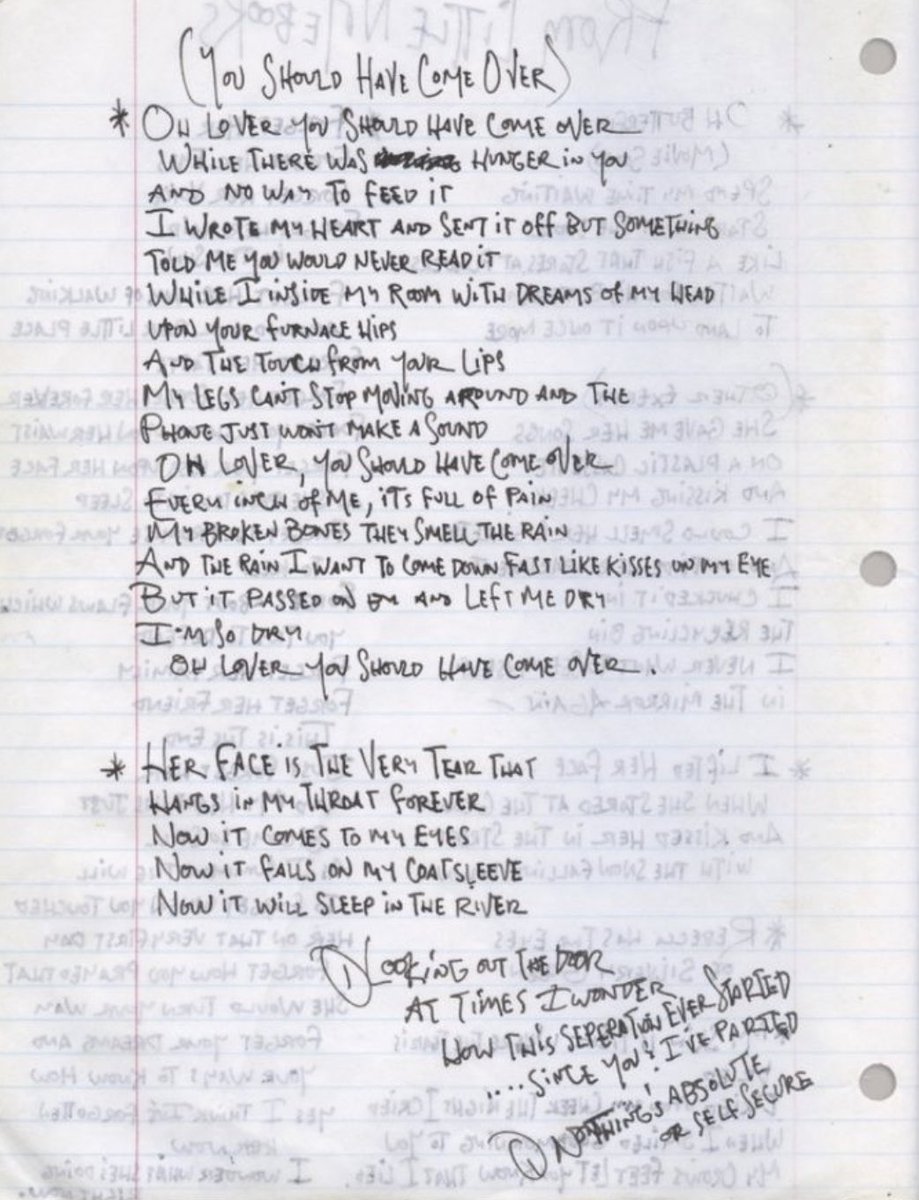 (YOU SHOULD HAVE COME OVER)
* OH LOVER YOU SHOULD HAVE COME OVER
WHILE THERE WAS HUNGER IN YOU
AND NO WAY TO FEED IT
I WROTE MY HEART AND SENT IT OFF BUT SOMETHING
TOLD ME YOU WOULD NEVER READ IT
WHILE I INSIDE MY ROOM WITH DREAMS OF MY HEAD
UPON YOUR FURNACE HIPS
AND THE TOUCH FROM YOUR LIPS
MY LEGS CAN'T STOP MOVING AROUND AND THE
PHONE JUST WON'T MAKE A SOUND
OH LOVER, YOU SHOULD HAVE COME OVER
EVERY INCH OF ME, ITS FULL OF PAIN
MY BROKEN BONES THEY SMELL THE RAIN
AND THE RAIN I WANT TO COME DOWN FAST LIKE KISSES ON MY EYE
BUT IT PASSED ON AND LEFT ME DRY
I'M SO DRY
OH LOVER YOU SHOULD HAVE COME OVER.
* HER FACE IS THE VERY TEAR THAT
HANGS IN MY THROAT FOREVER
NOW IT COMES TO MY EYES
NOW IT FALLS ON MY COATSLEEVE
NOW IT WILL SLEEP IN THE RIVER
LOOKING OUT THE DOOR
AT TIMES I WONDER
HOW THIS SEPERATION EVER STARTED
.... SINCE YOU & I'VE PARTED
NOTHING'S ABSOLUTE
OR SELF SECURE